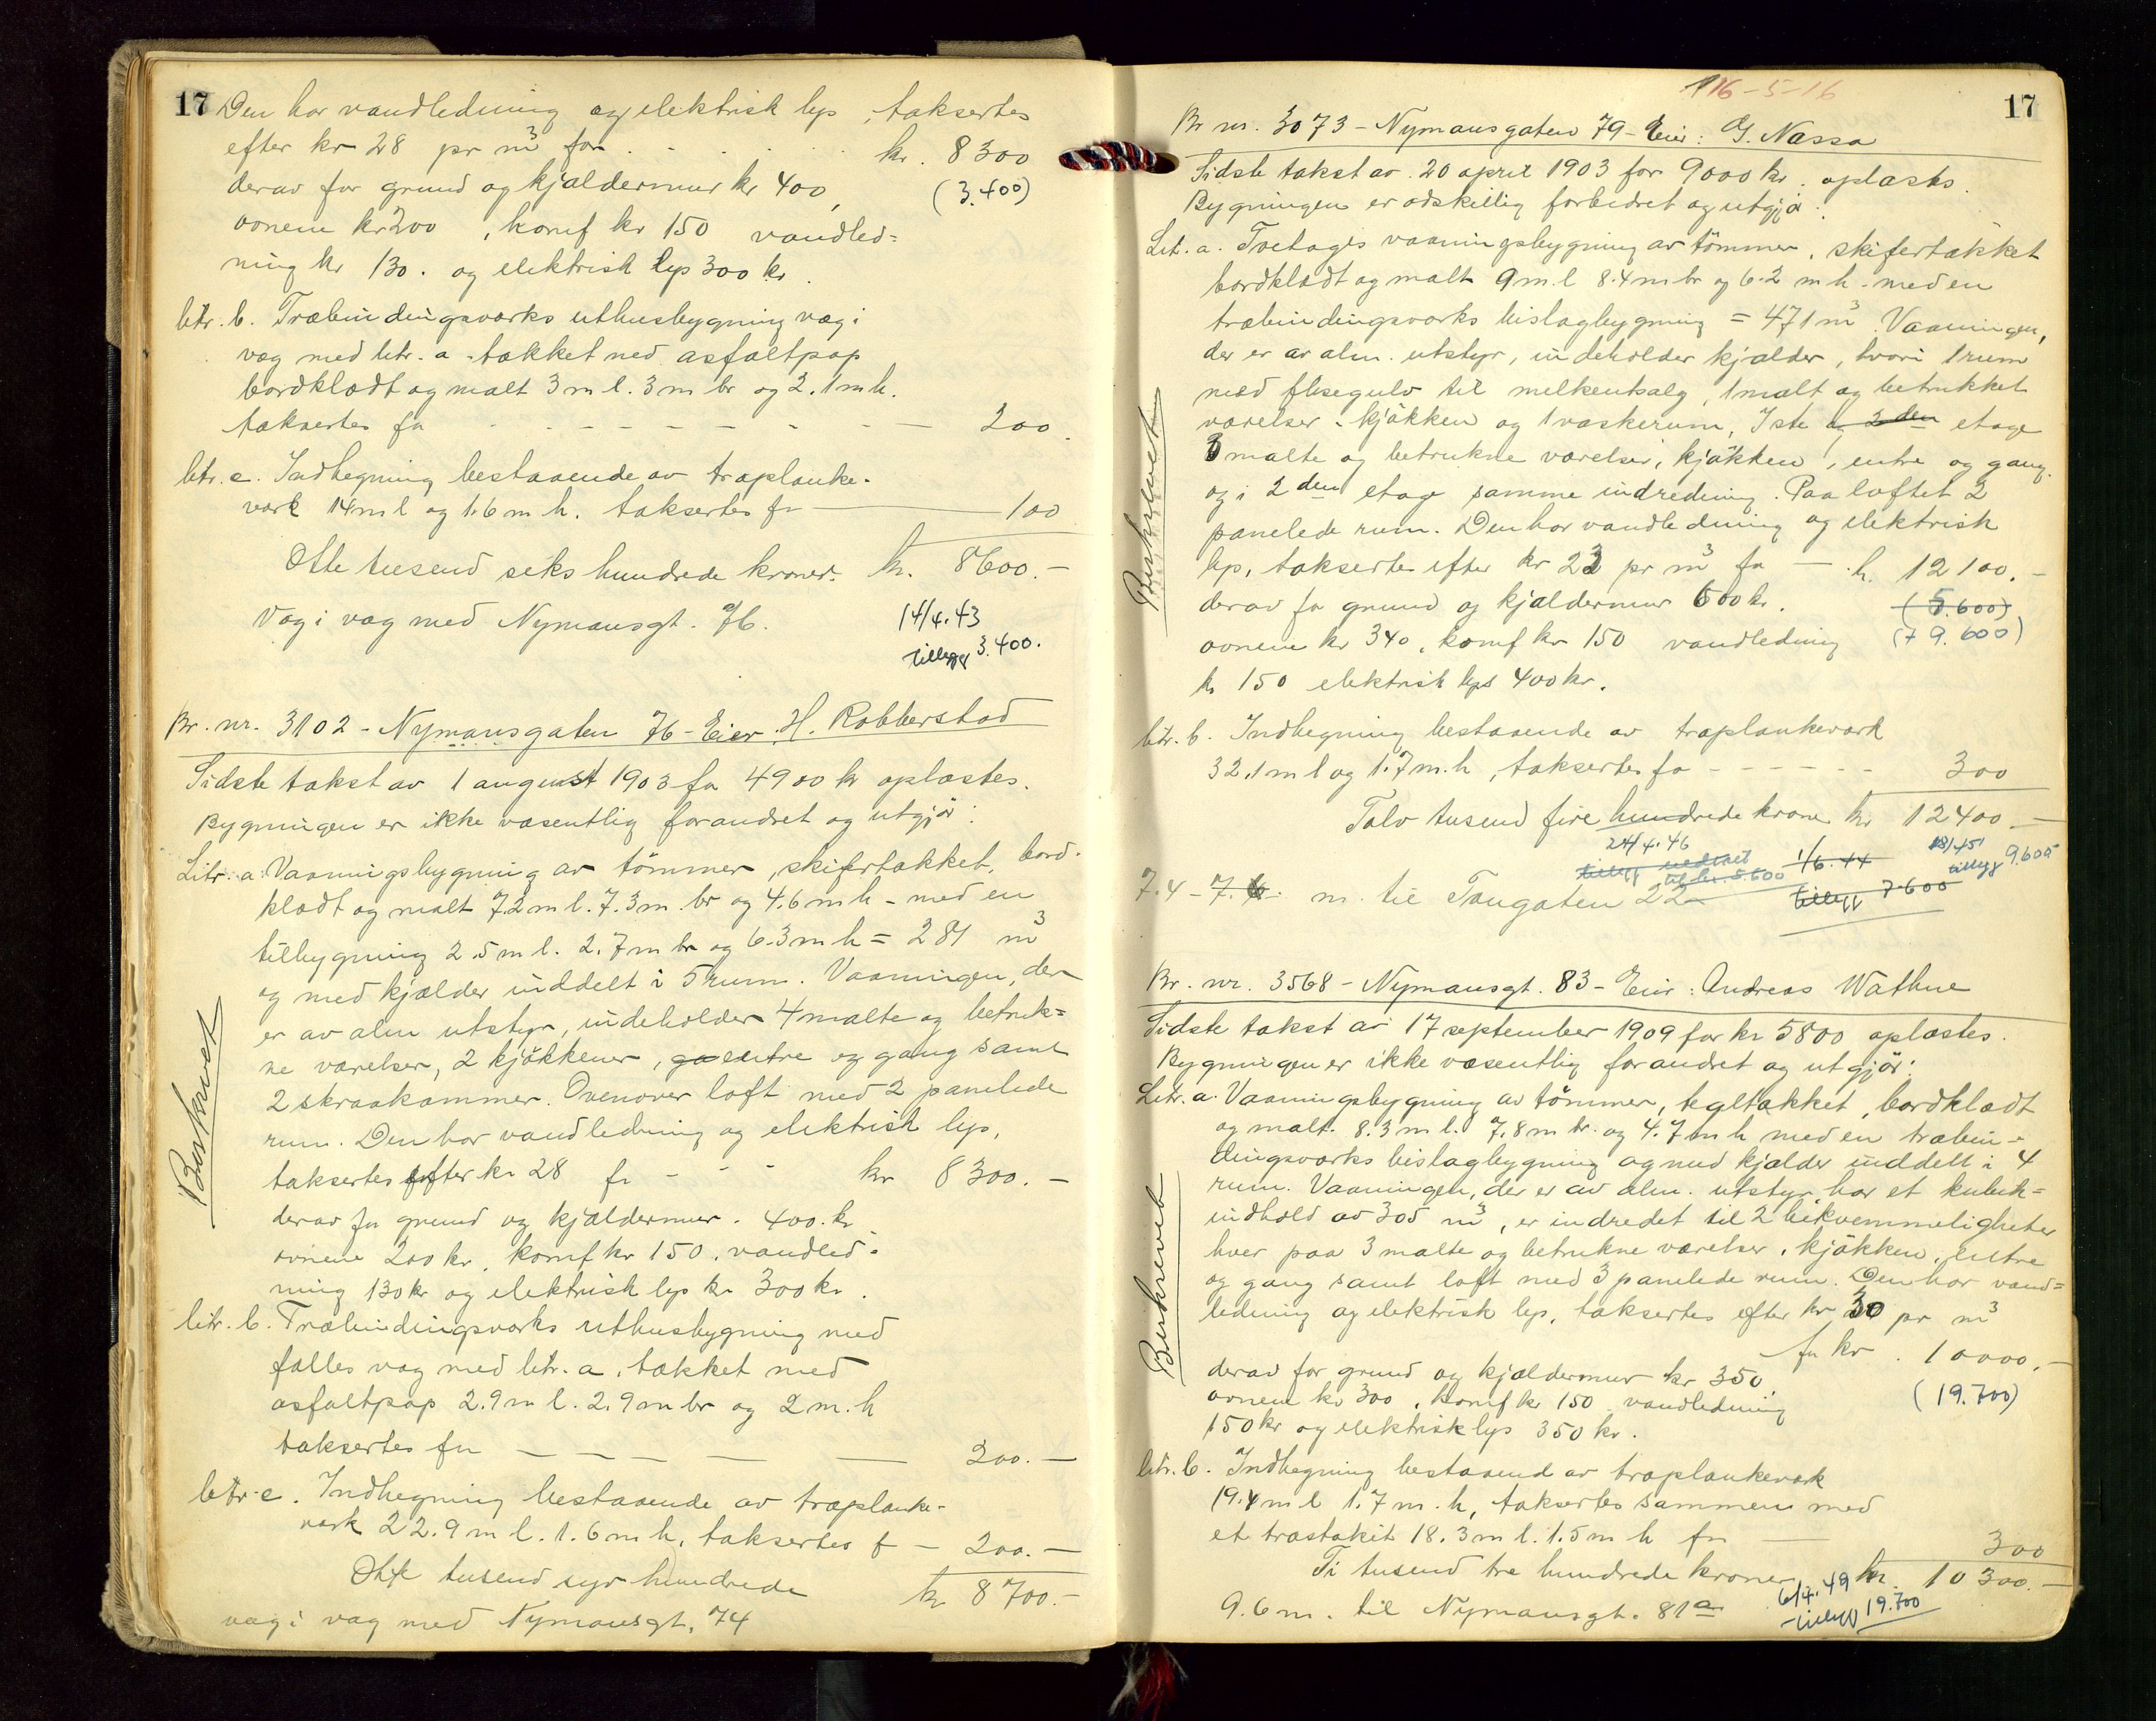 17
Den har vandledning og elektrisk lys, taksertes
efter kr 28 pr m³ for . - . . . . kr. 8300
derav for grund og kjældermur kr 400, (3.400)
ovnene kr 200, komf kr 150 vandled=
ning kr 130. og elektrisk lys 300 kr.
litr. b. Træbindingsværks uthusbygning væg i
væg med litr. a - tækket med asfaltpap
bordklædt og malt 3 m l. 3 m br og 2.1 m h.
taksertes for - - - - - - - - 200.
litr. c. Indhegning bestaaende av træplanke-
værk 14 m l og 1.6 m h. taksertes for — 100
Otte tusend seks hundrede kroner. kr. 8600.-
Væg i væg med Nymansgt. 76.
14/4.43
tillegg 3.400.
Br. nr. 3102 - Nymansgaten 76 - Eier. H. Robberstad
Sidste takst av 1 august 1903 for 4900 kr oplæstes.
Bygningen er ikke væsentlig forandret og utgjør:
Litr. a. Vaaningsbygning av tömmer, skifertækket, bord-
klædt og malt 7.2 m l. 7.3 m. br og 4.6 m h - med en
tilbygning 2.5 m l. 2.7 m br og 6.3 m h = 281 m³
og med kjælder inddelt i 5 rum. Vaaningen, der
er av alm utstyr, indeholder 4 malte og betruk=
ne værelser, 2 kjökkener, entre og gang samt
2 skraakammer. Ovenover loft med 2 panelede
rum. Den har vandledning og elektrisk lys,
taksertes efter kr 28 for - - - kr 8300.-
derav for grund og kjældermur. 400. kr
ovnene 200 kr, komf kr 150. vandled-
ning 130 kr og elektrisk lys kr 300 kr.
litr. b. Træbindingsværks uthusbygning med
fælles væg med litr. a. tækket med
asfaltpap 2.9 m l. 2.9 m br og 2 m. h
taksertes for — — — — — 200.-
litr. c. Indhegning bestaaende av træplanke-
værk 22.9 m l. 1.6 m h, taksertes f — 200.-
Otte tusend syv hundrede kr 8700.-
væg i væg med Nymansgt. 74
Beskrevet
16-5-16
17
Br nr. 3073 - Nymansgaten 79 - Eier: G. Næssa
Sidste takst av. 20 april 1903 for 9000 kr. oplæstes.
Bygningen er adskillig forbedret og utgjör:
Litr. a. Toetages vaaningsbygning av tömmer, skifertækket
bordklædt og malt 9 m. l 8.4 m br og 6.2 m h - med en
træbindingsværks bislagbygning = 471 m³ Vaaningen,
der er av alm. utstyr, indeholder kjælder, hvori 1 rum
med flisegulv til melkeutsalg, 1 malt og betrukket
værelser, kjökken og 1 vaskerum, 1ste og 2den etage
3 malte og betrukne værelser, kjökken, entre og gang.
og i 2den etage samme indredning. Paa loftet 2
panelede rum. Den har vandledning og elektrisk
lys, taksertes efter kr 23 pr m³ for — k. 12100.-
derav for grund og kjældermur 600 kr. (5.600)
ovnene kr 340, komf kr 150 vandledning (+ 9.600)
kr 150 elektrisk lys 400 kr.
litr. b. Indhegning bestaaende av træplankeværk
32.1 m l og 1.7 m. h, taksertes for - - - - - 300
Tolv tusend fire hundrede kroner kr 12400.-
24/4.46
tillegg nedsat
til kr. 5.600
1/6.44
tillegg 7.600
18/1 45
tillegg 9.600
7.4 - 7.6 m. til Tangaten 22
Br. nr. 3568 - Nymansgt. 83 - Eier: Andreas Wathne
Sidste takst av 17 september 1909 for kr 5800 oplæstes.
Bygningen er ikke væsentlig forandret og utgjör:
Litr. a. Vaaningsbygning av tömmer, tegltækket, bordklædt
og malt. 8.3 m l. 7.8 m br. og 4.7 m h med en træbin-
dingsværks bislagbygning og med kjælder inddelt i 4
rum. Vaaningen, der er av alm. utstyr, har et kubik=
indhold av 305 m³, er indredet til 2 bekvemmeligheter
hver paa 3 malte og betrukne værelser, kjökken, entre
og gang samt loft med 3 panelede rum. Den har vand=
ledning og elektrisk lys, taksertes efter kr 30 pr m³
for kr. 10000.-
derav for grund og kjældermur kr 350
ovnene kr 300, komf kr 150 vandledning (19.700)
150 kr og elektrisk lys 350 kr.
litr. b. Indhegning bestaaend av træplankeværk
19.4 m l 1.7 m. h, taksertes sammen med
et træstakit 18.3 m l. 1.5 m h for — 300
Ti tusend tre hundrede kroner kr. 10300.-
9.6 m. til Nymansgt. 81a
6/4.49
tillegg 19.700
Beskrevet
Beskrevet